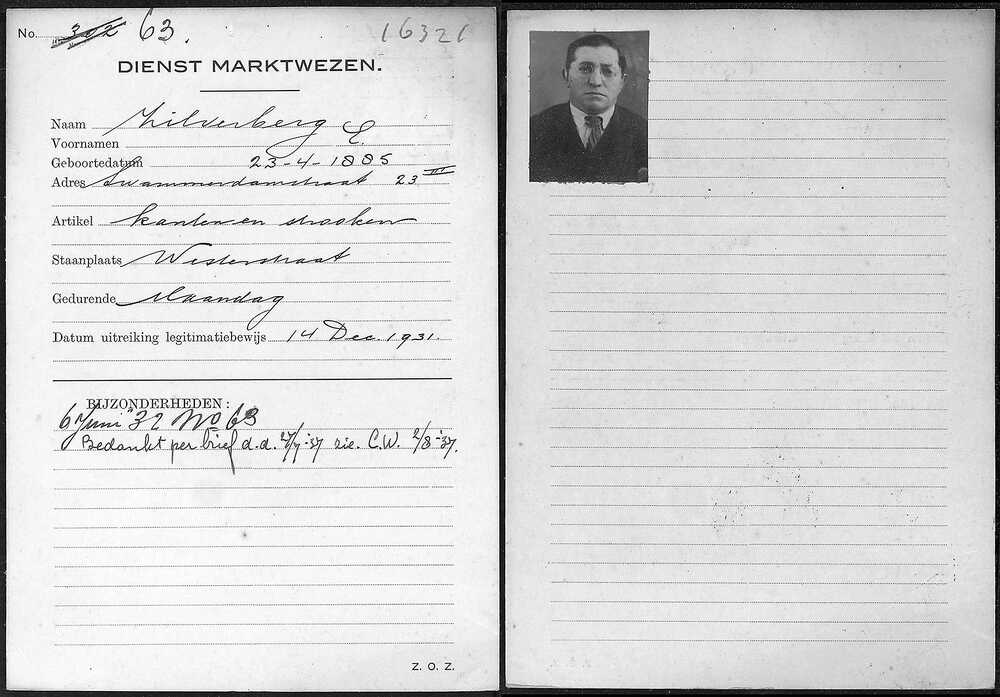 No. 302 63. 16321
DIENST MARKTWEZEN.
Naam Zilverberg
Voornamen E.
Geboortedatum 23-4-1885
Adres Swammerdamstraat 23 III
Artikel kanten en strooken
Staanplaats Westerstraat
Gedurende Maandag
Datum uitreiking legitimatiebewijs 14 Dec. 1931.
BIJZONDERHEDEN:
6 Juni '32 No 63
Bedankt per brief d.d. 27/7-'37 zie. C.W. 2/8-'37.
Z. O. Z.